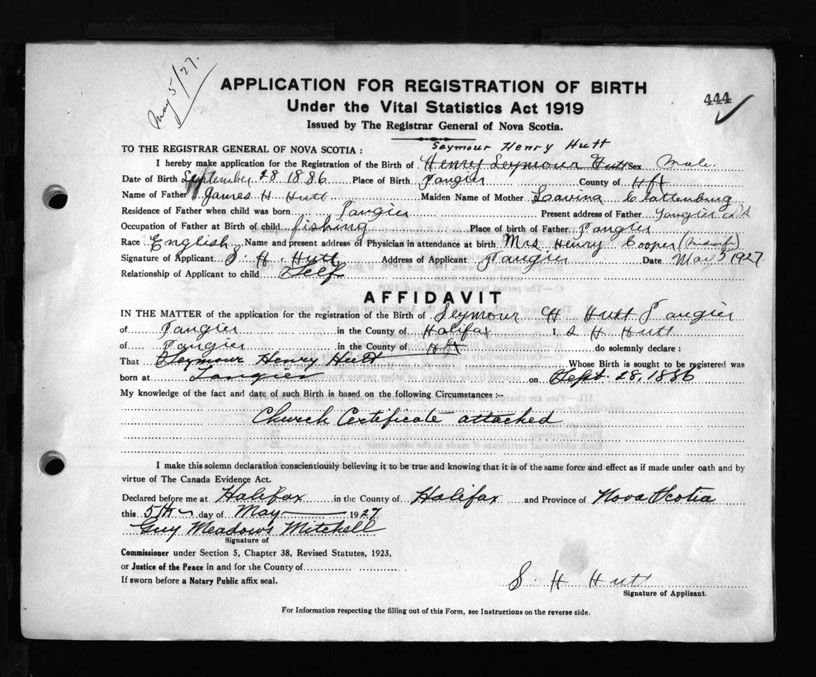 May 5/27.
APPLICATION FOR REGISTRATION OF BIRTH
444
Under the Vital Statistics Act 1919
Issued by The Registrar General of Nova Scotia.
TO THE REGISTRAR GENERAL OF NOVA SCOTIA : Seymour Henry Hutt
I hereby make application for the Registration of the Birth of Henry Seymour Hutt Sex Male.
Date of Birth September 28 1886 Place of Birth Tangier County of Hfx
Name of Father James H Hutt Maiden Name of Mother Lavina C Lattenburg
Residence of Father when child was born Tangier Present address of Father Tangier
Occupation of Father at Birth of child fishing Place of birth of Father Tangier
Race English Name and present address of Physician in attendance at birth Mrs Henry Cooper (midwife)
Signature of Applicant S. H. Hutt Address of Applicant Tangier Date May 5 1927
Relationship of Applicant to child Self
AFFIDAVIT
IN THE MATTER of the application for the registration of the Birth of Seymour H Hutt Tangier
of Tangier in the County of Halifax I, S H Hutt
of Tangier in the County of Hfx do solemnly declare :
That Seymour Henry Hutt Whose Birth is sought to be registered was
born at Tangier on Sept. 28, 1886
My knowledge of the fact and date of such Birth is based on the following Circumstances :-
Church Certificate attached
I make this solemn declaration conscientiously believing it to be true and knowing that it is of the same force and effect as if made under oath and by
virtue of The Canada Evidence Act.
Declared before me at Halifax in the County of Halifax and Province of Nova Scotia
this 5th day of May 1927
Guy Meadows Mitchell
Signature of
Commissioner under Section 5, Chapter 38, Revised Statutes, 1923,
or Justice of the Peace in and for the County of
If sworn before a Notary Public affix seal.
S H Hutt
Signature of Applicant.
For Information respecting the filling out of this Form, see Instructions on the reverse side.